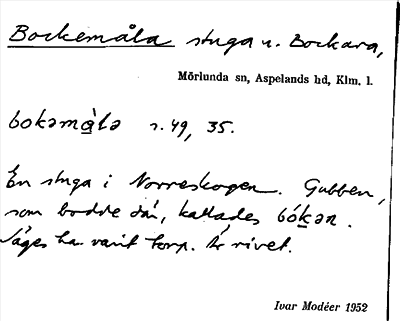 Bockemåla stuga u. Bockara,
Mörlunda sn, Aspelands hd, Klm. l.
bokəmà̱lə s. 49, 35.
En stuga i Norreskogen. Gubben,
som bodde där, kallades bók̲ən.
Säges ha varit torp. Är rivet.
Ivar Modéer 1952